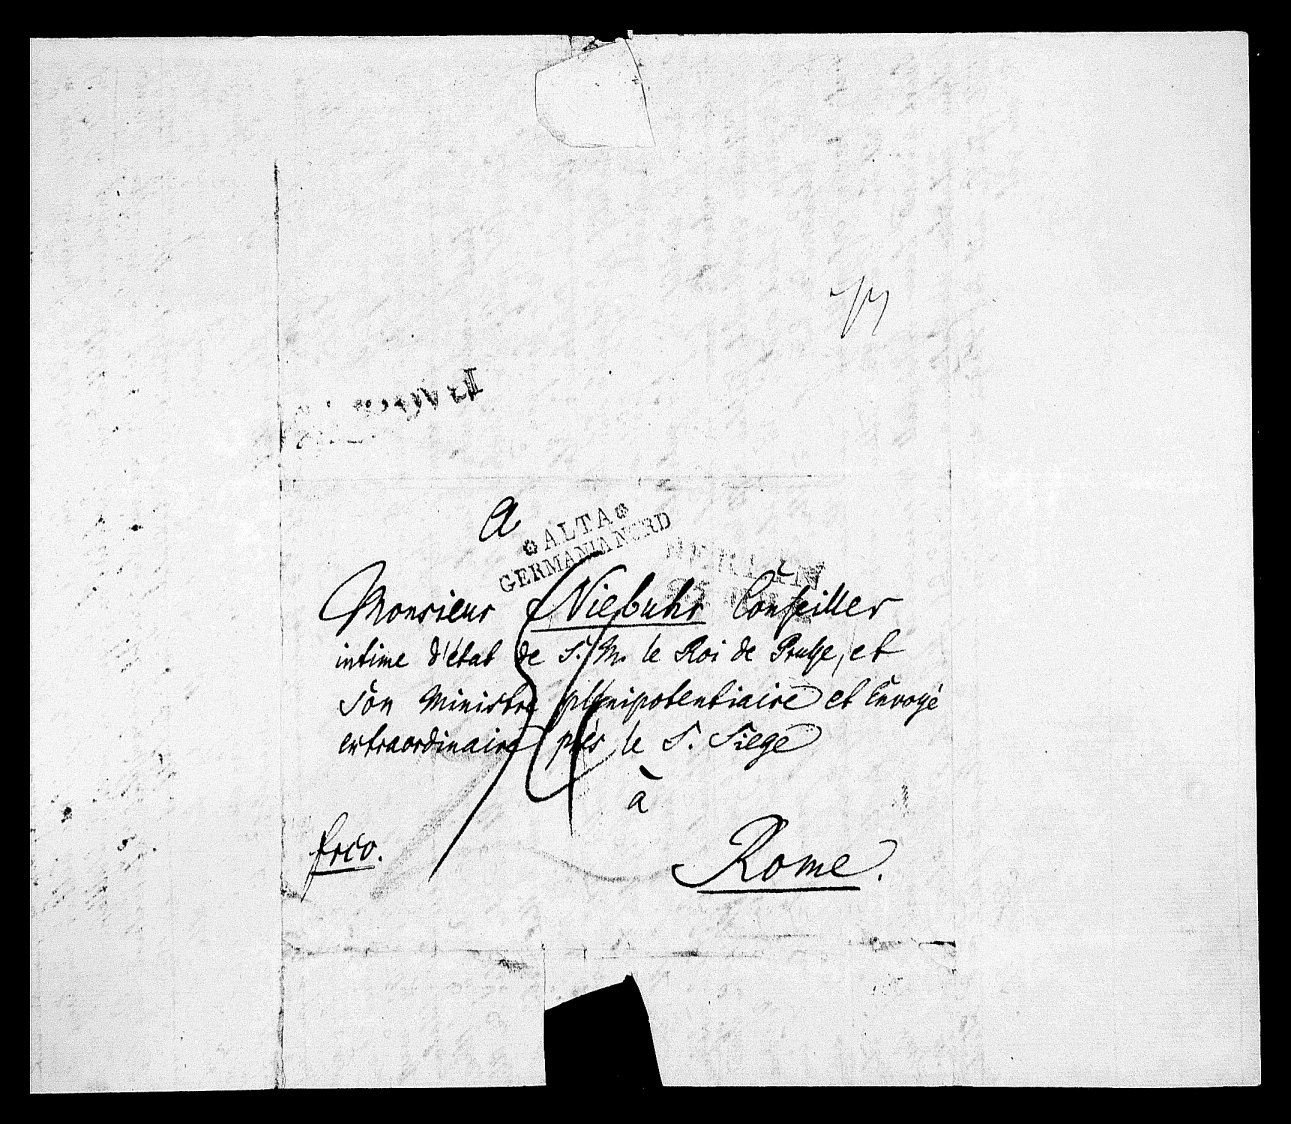 A
ALTA
GERMANIA NORD
BERLIN
Monsieur Niebuhr Conseiller
intime d'état de S. M. le Roi de Prusse, et
Son Ministre plenipotentiaire et Envoyé
extraordinaire près le S. Siege
à
frco.
Rome.